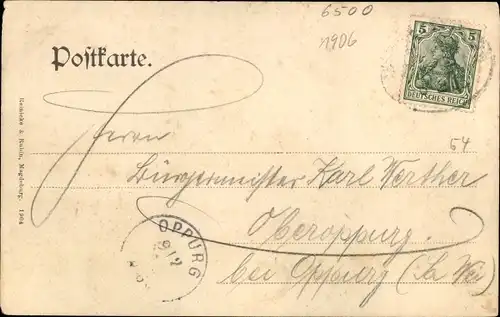 6500
1906
5 5
DEUTSCHES REICH
Postkarte.
Reinicke & Rubin, Magdeburg. 1904
Herrn
54
Bürgermeister Karl Werther
Oberoppurg.
bei Oppurg (Sa Wei)
OPPURG
9/2